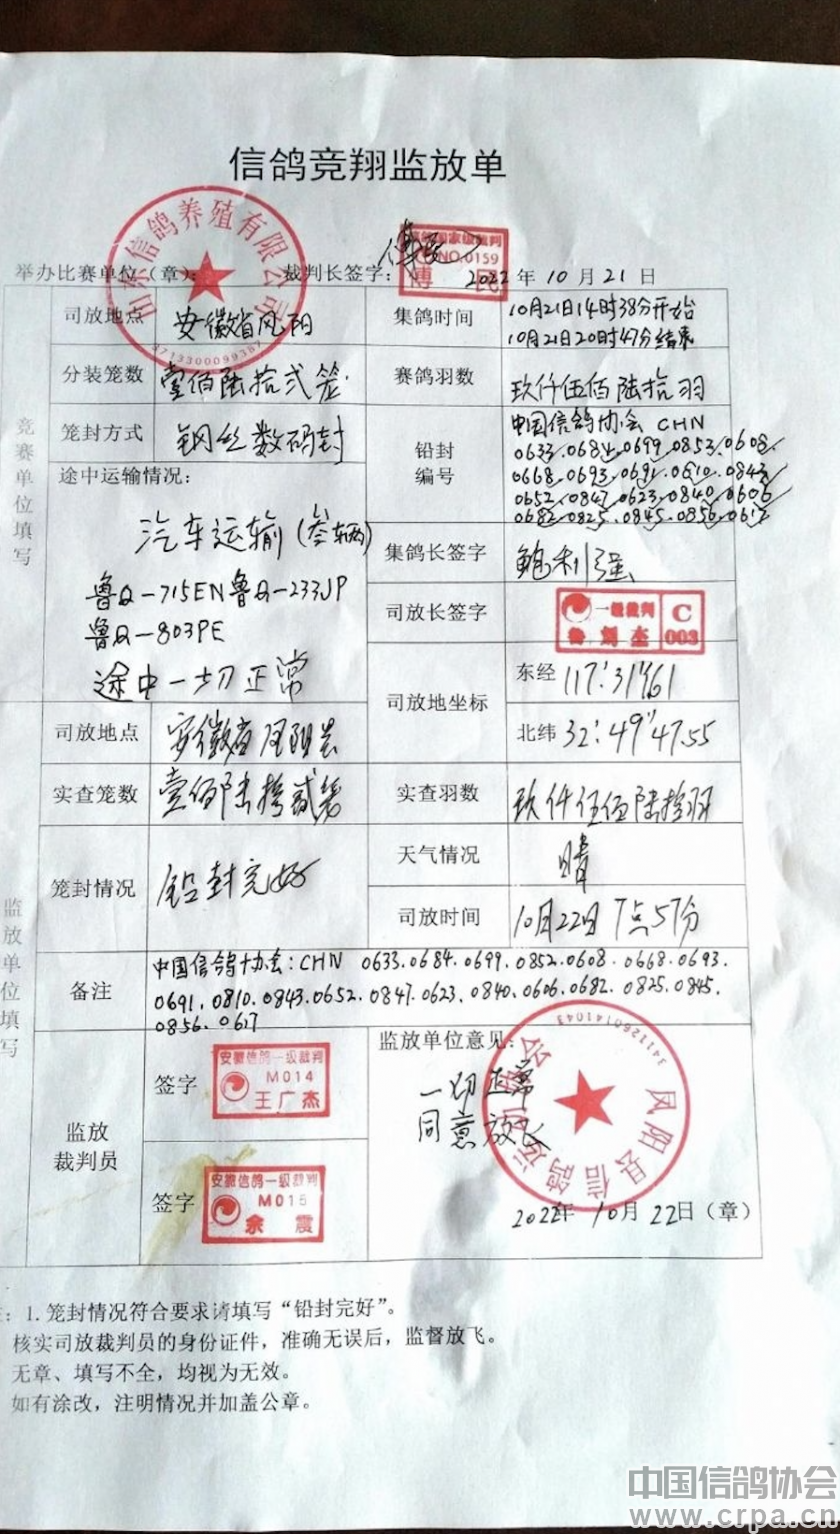 信鸽竞翔监放单
信鸽养殖有限公司
3713300099387
信鸽国家级裁判
NO.0159
傅民
举办比赛单位(章): 裁判长签字: 2022年10月21日
竞赛单位填写
司放地点 安徽省凤阳 集鸽时间 10月21日14时38分开始
10月21日20时47分结束
分装笼数 壹佰陆拾弍笼 赛鸽羽数 玖仟伍佰陆拾羽
笼封方式 钢丝数码封 铅封编号 中国信鸽协会 CHN
0633.0684.0699.0853.0608.
0668.0693.0691.0810.0843
0652.0847.0623.0840.0606
0682.0825.0845.0856.0617
途中运输情况:
汽车运输(叁辆)
鲁Q-715EN鲁Q-233JP
鲁Q-803PE
途中一切正常
集鸽长签字 鲍利强
司放长签字 一级裁判 C
鲁 刘杰 003
司放地坐标 东经 117°31'1"61
北纬 32°49'47.55
监放单位填写
司放地点 安徽省凤阳县
实查笼数 壹佰陆拾贰笼 实查羽数 玖仟伍佰陆拾羽
笼封情况 铅封完好 天气情况 晴
司放时间 10月22日7点57分
备注 中国信鸽协会:CHN 0633.0684.0699.0852.0608.0668.0693.
0691.0810.0843.0652.0847.0623.0840.0606.0682.0825.0845.
0856.0617
监放裁判员
签字 安徽信鸽一级裁判
M014
王广杰
签字 安徽信鸽一级裁判
M015
余震
监放单位意见:
一切正常
同意放飞
凤阳县信鸽运动协会
3411260141043
2022年10月22日(章)
1.笼封情况符合要求请填写“铅封完好”。
核实司放裁判员的身份证件,准确无误后,监督放飞。
无章、填写不全,均视为无效。
如有涂改,注明情况并加盖公章。
中国信鸽协会
www.crpa.cn